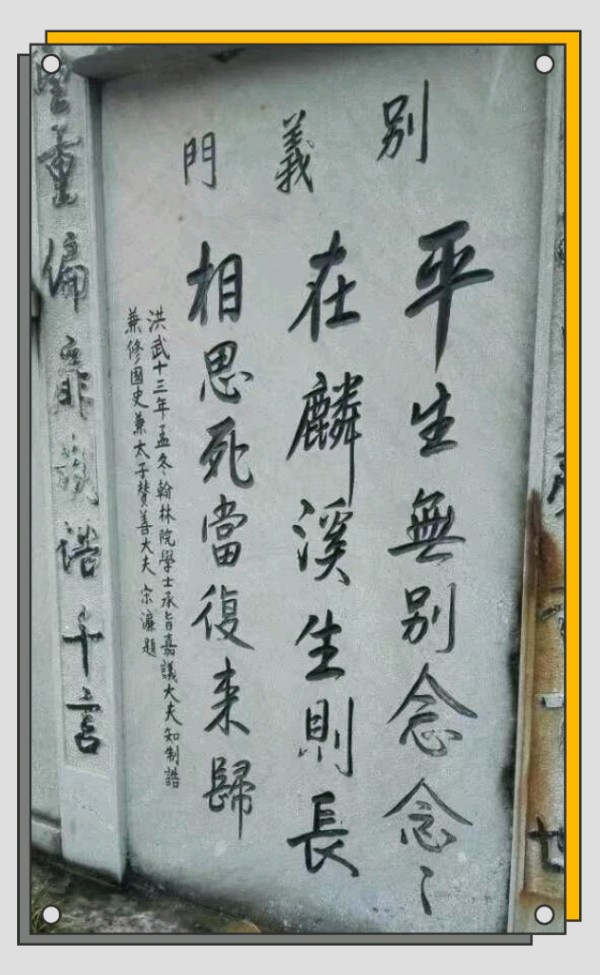 别義門
平生無别念念〻
在麟溪生則長
相思死當復来歸
洪武十三年孟冬翰林院學士承旨嘉議大夫知制誥
兼修國史兼太子贊善大夫 宋濂題
重偏誥千言